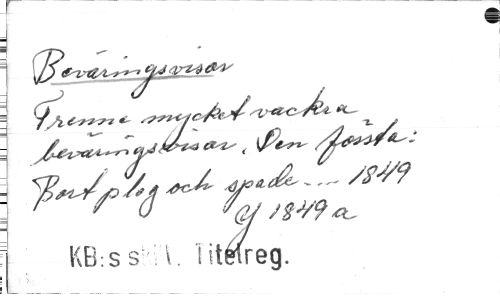 Beväringsvisor
Trenne mycket vackra
beväringsvisor. Den första:
Bort plog och spade .... 1849
Y 1849 a
KB:s Titelreg.